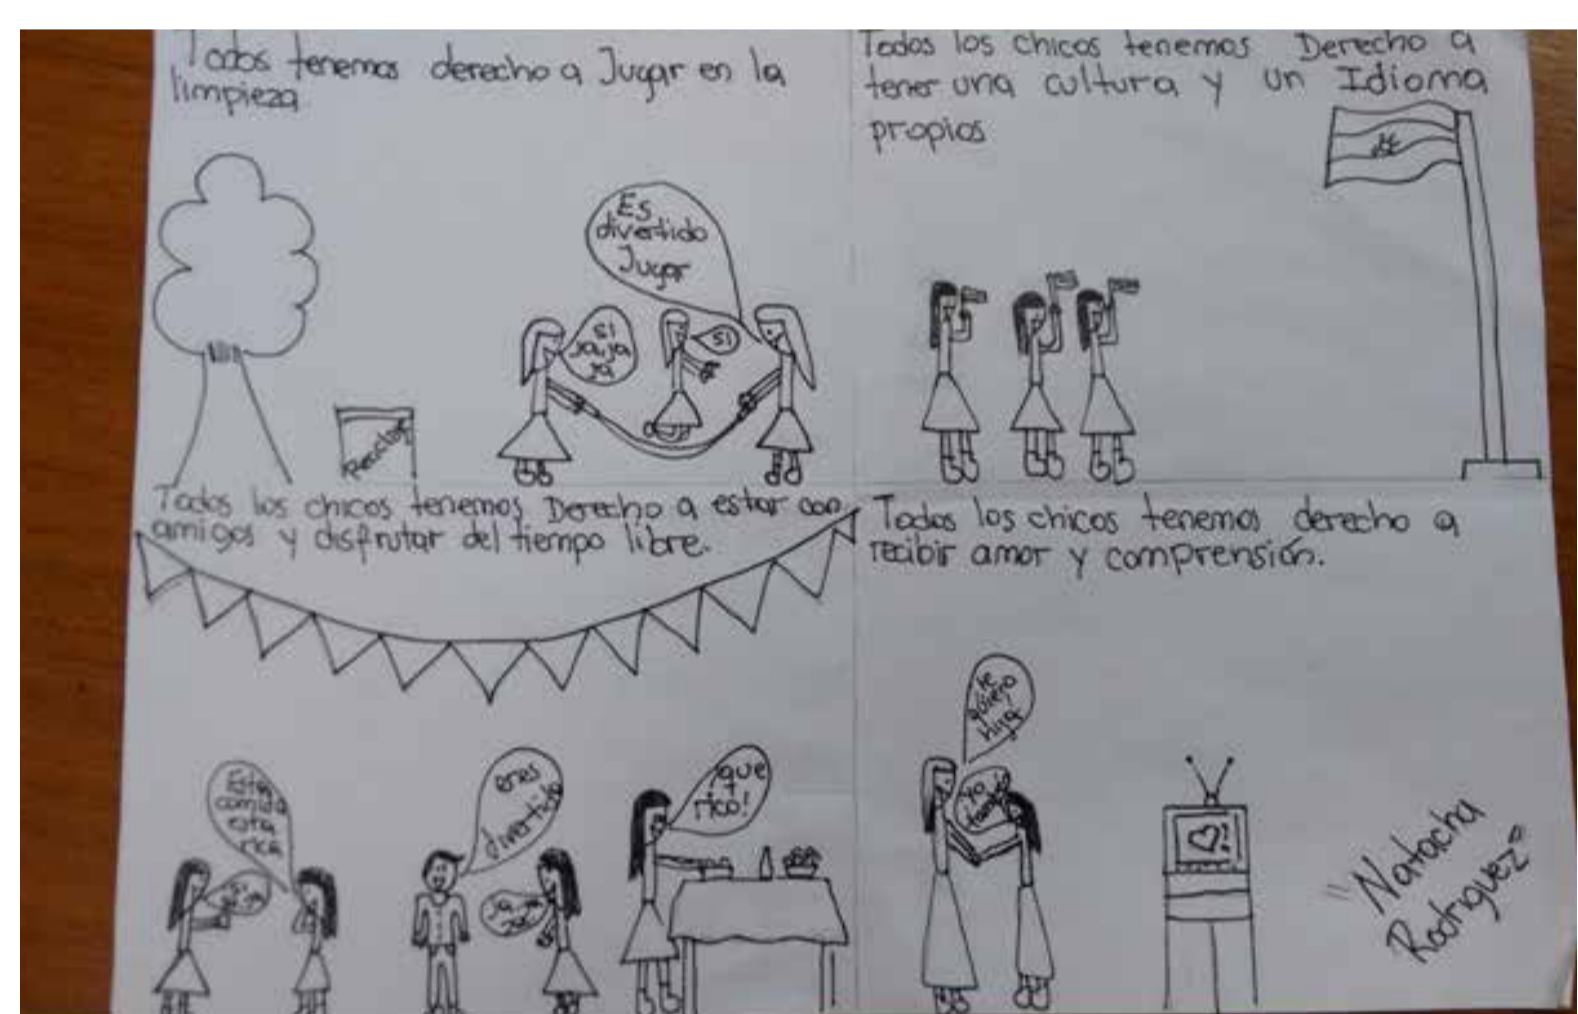 Todos tenemos derecho a Jugar en la
limpieza
Es
divertido
Jugar
si
ja ja
ja
si
Reciclar
Todos los chicos tenemos Derecho a
tener una cultura y un Idioma
propios
Todos los chicos tenemos Derecho a estar con
amigos y disfrutar del tiempo libre.
Esta
comida
esta
rica
eres
divertido
que
rico!
Todos los chicos tenemos derecho a
recibir amor y comprensión.
te
quiero
hija
yo
también
"Natacha
Rodriguez"